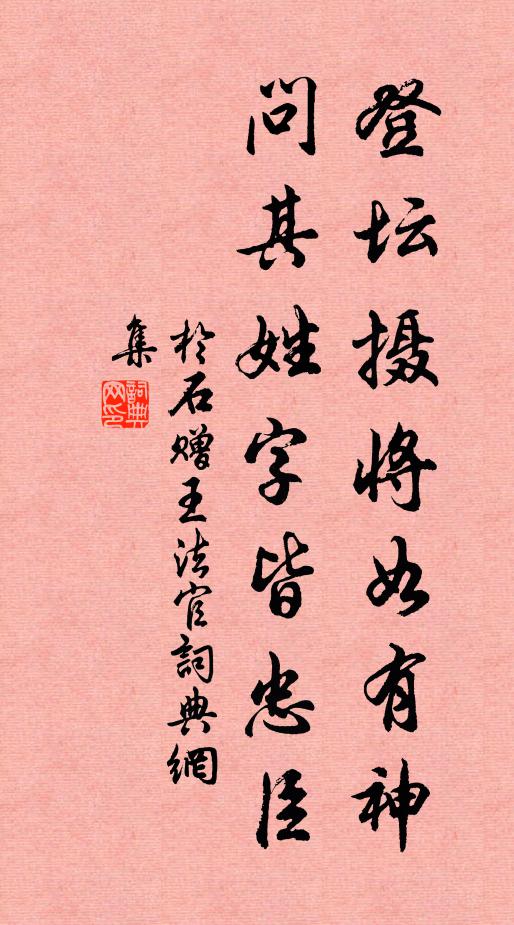 登坛摄将如有神
问其姓字皆忠臣
於石赠王法官詞典網
集
詞典網印